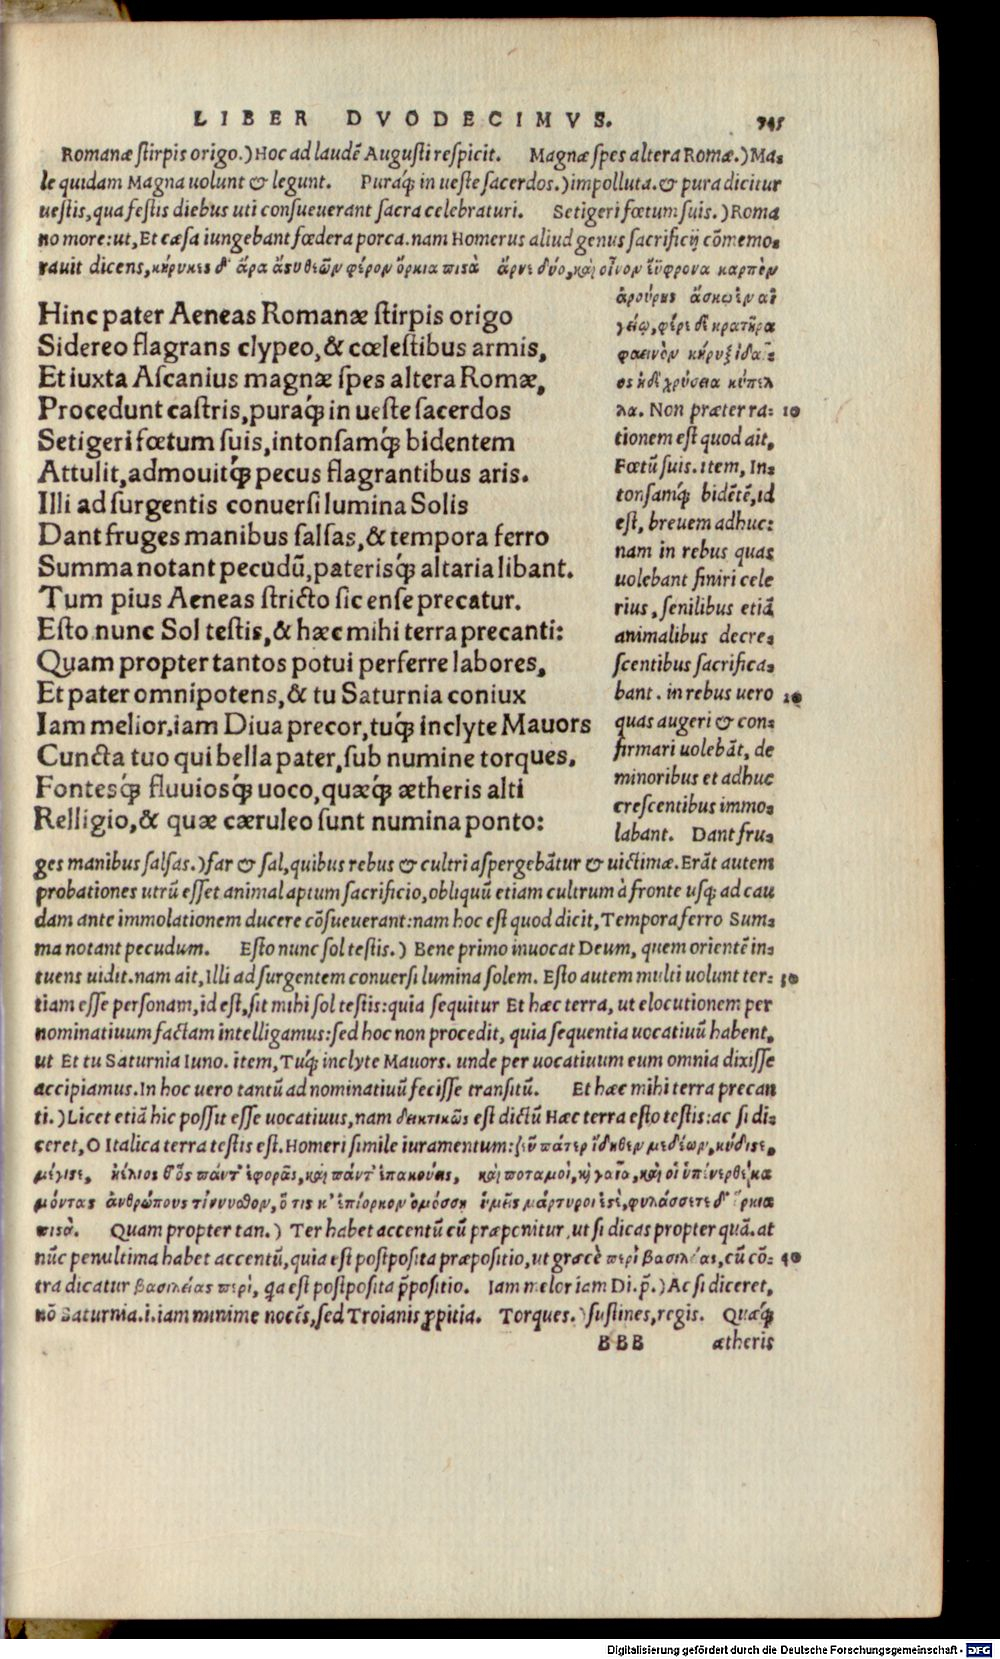 LIBER DVODECIMVS. 745
Romanæ stirpis origo.) Hoc ad laudē Augusti respicit. Magnæ spes altera Romæ.) Ma-
le quidam Magna uolunt & legunt. Puraq́; in ueste sacerdos.) impolluta. & pura dicitur
uestis, qua festis diebus uti consueuerant sacra celebraturi. Setigeri fœtum suis.) Roma
no more: ut, Et cæsa iungebant fœdera porca. nam Homerus aliud genus sacrificij cōmemo-
rauit dicens, κήρυκες δ' ἄρα ἄστυ θεῶν φέρον ὅρκια πιστὰ ἄρνε δύο, καὶ οἶνον ἐΰφρονα καρπὸν
Hinc pater Aeneas Romanæ stirpis origo
Sidereo flagrans clypeo, & cœlestibus armis,
Et iuxta Ascanius magnæ spes altera Romæ,
Procedunt castris, puraq́; in ueste sacerdos
Setigeri fœtum suis, intonsamq́; bidentem
Attulit, admouitq́; pecus flagrantibus aris.
Illi ad surgentis conuersi lumina Solis
Dant fruges manibus salsas, & tempora ferro
Summa notant pecudū, paterisq́; altaria libant.
Tum pius Aeneas stricto sic ense precatur.
Esto nunc Sol testis, & hæc mihi terra precanti:
Quam propter tantos potui perferre labores,
Et pater omnipotens, & tu Saturnia coniux
Iam melior, iam Diua precor, tuq́; inclyte Mauors
Cuncta tuo qui bella pater, sub numine torques.
Fontesq́; fluuiosq́; uoco, quæq́; ætheris alti
Relligio, & quæ cæruleo sunt numina ponto:
ἀρούρης ἀσκῷ ἐν αἰ
γείῳ, φέρε δὲ κρατῆρα
φαεινὸν κήρυξ ἰδαῖ-
ος ἠδὲ χρύσεια κύπελ
λα. Non præter ra- 10
tionem est quod ait,
Fœtū suis. item, In-
tonsamq́; bidētē, id
est, breuem adhuc:
nam in rebus quas
uolebant finiri cele
rius, senilibus etiā
animalibus decre-
scentibus sacrifica-
bant. in rebus uero 20
quas augeri & con-
firmari uolebāt, de
minoribus et adhuc
crescentibus immo-
labant. Dant fru-
ges manibus salsas.) far & sal, quibus rebus & cultri aspergebātur & uictimæ. Erāt autem
probationes utrū esset animal aptum sacrificio, obliquū etiam cultrum à fronte usq; ad cau
dam ante immolationem ducere cōsueuerant: nam hoc est quod dicit, Tempora ferro Sum-
ma notant pecudum. Esto nunc sol testis.) Bene primo inuocat Deum, quem orientē in-
tuens uidit. nam ait, Illi ad surgentem conuersi lumina solem. Esto autem multi uolunt ter- 30
tiam esse personam, id est, sit mihi sol testis: quia sequitur Et hæc terra, ut elocutionem per
nominatiuum factam intelligamus: sed hoc non procedit, quia sequentia uocatiuū habent,
ut Et tu Saturnia Iuno. item, Tuq́; inclyte Mauors. unde per uocatiuum eum omnia dixisse
accipiamus. In hoc uero tantū ad nominatiuū fecisse transitū. Et hæc mihi terra precan
ti.) Licet etiā hic possit esse uocatiuus, nam δεικτικῶς est dictū Hæc terra esto testis: ac si di-
ceret, O Italica terra testis est. Homeri simile iuramentum: ζεῦ πάτερ ἴδηθεν μεδέων, κύδιστε,
μέγιστε, ἠέλιος θ' ὃς πάντ' ἐφορᾷς, καὶ πάντ' ἐπακούεις, καὶ ποταμοὶ, καὶ γαῖα, καὶ οἱ ὑπένερθε κα
μόντας ἀνθρώπους τίννυσθον, ὅτις κ' ἐπίορκον ὀμόσση ὑμεῖς μάρτυροι ἐστὲ, φυλάσσετε δ' ὅρκια
πιστά. Quam propter tan.) Ter habet accentū cū præponitur, ut si dicas propter quā. at
nūc penultima habet accentū, quia est postposita præpositio, ut græcè περὶ βασιλείας, cū cō- 40
tra dicatur βασιλείας πέρι, qa est postposita p̄positio. Iam melor iam Di. p̄.) Ac si diceret,
nō Saturnia. i. iam minime nocēs, sed Troianis ꝓpitia. Torques.) sustines, regis. Quæq́;
BBB ætheris
Digitalisierung gefördert durch die Deutsche Forschungsgemeinschaft - DFG